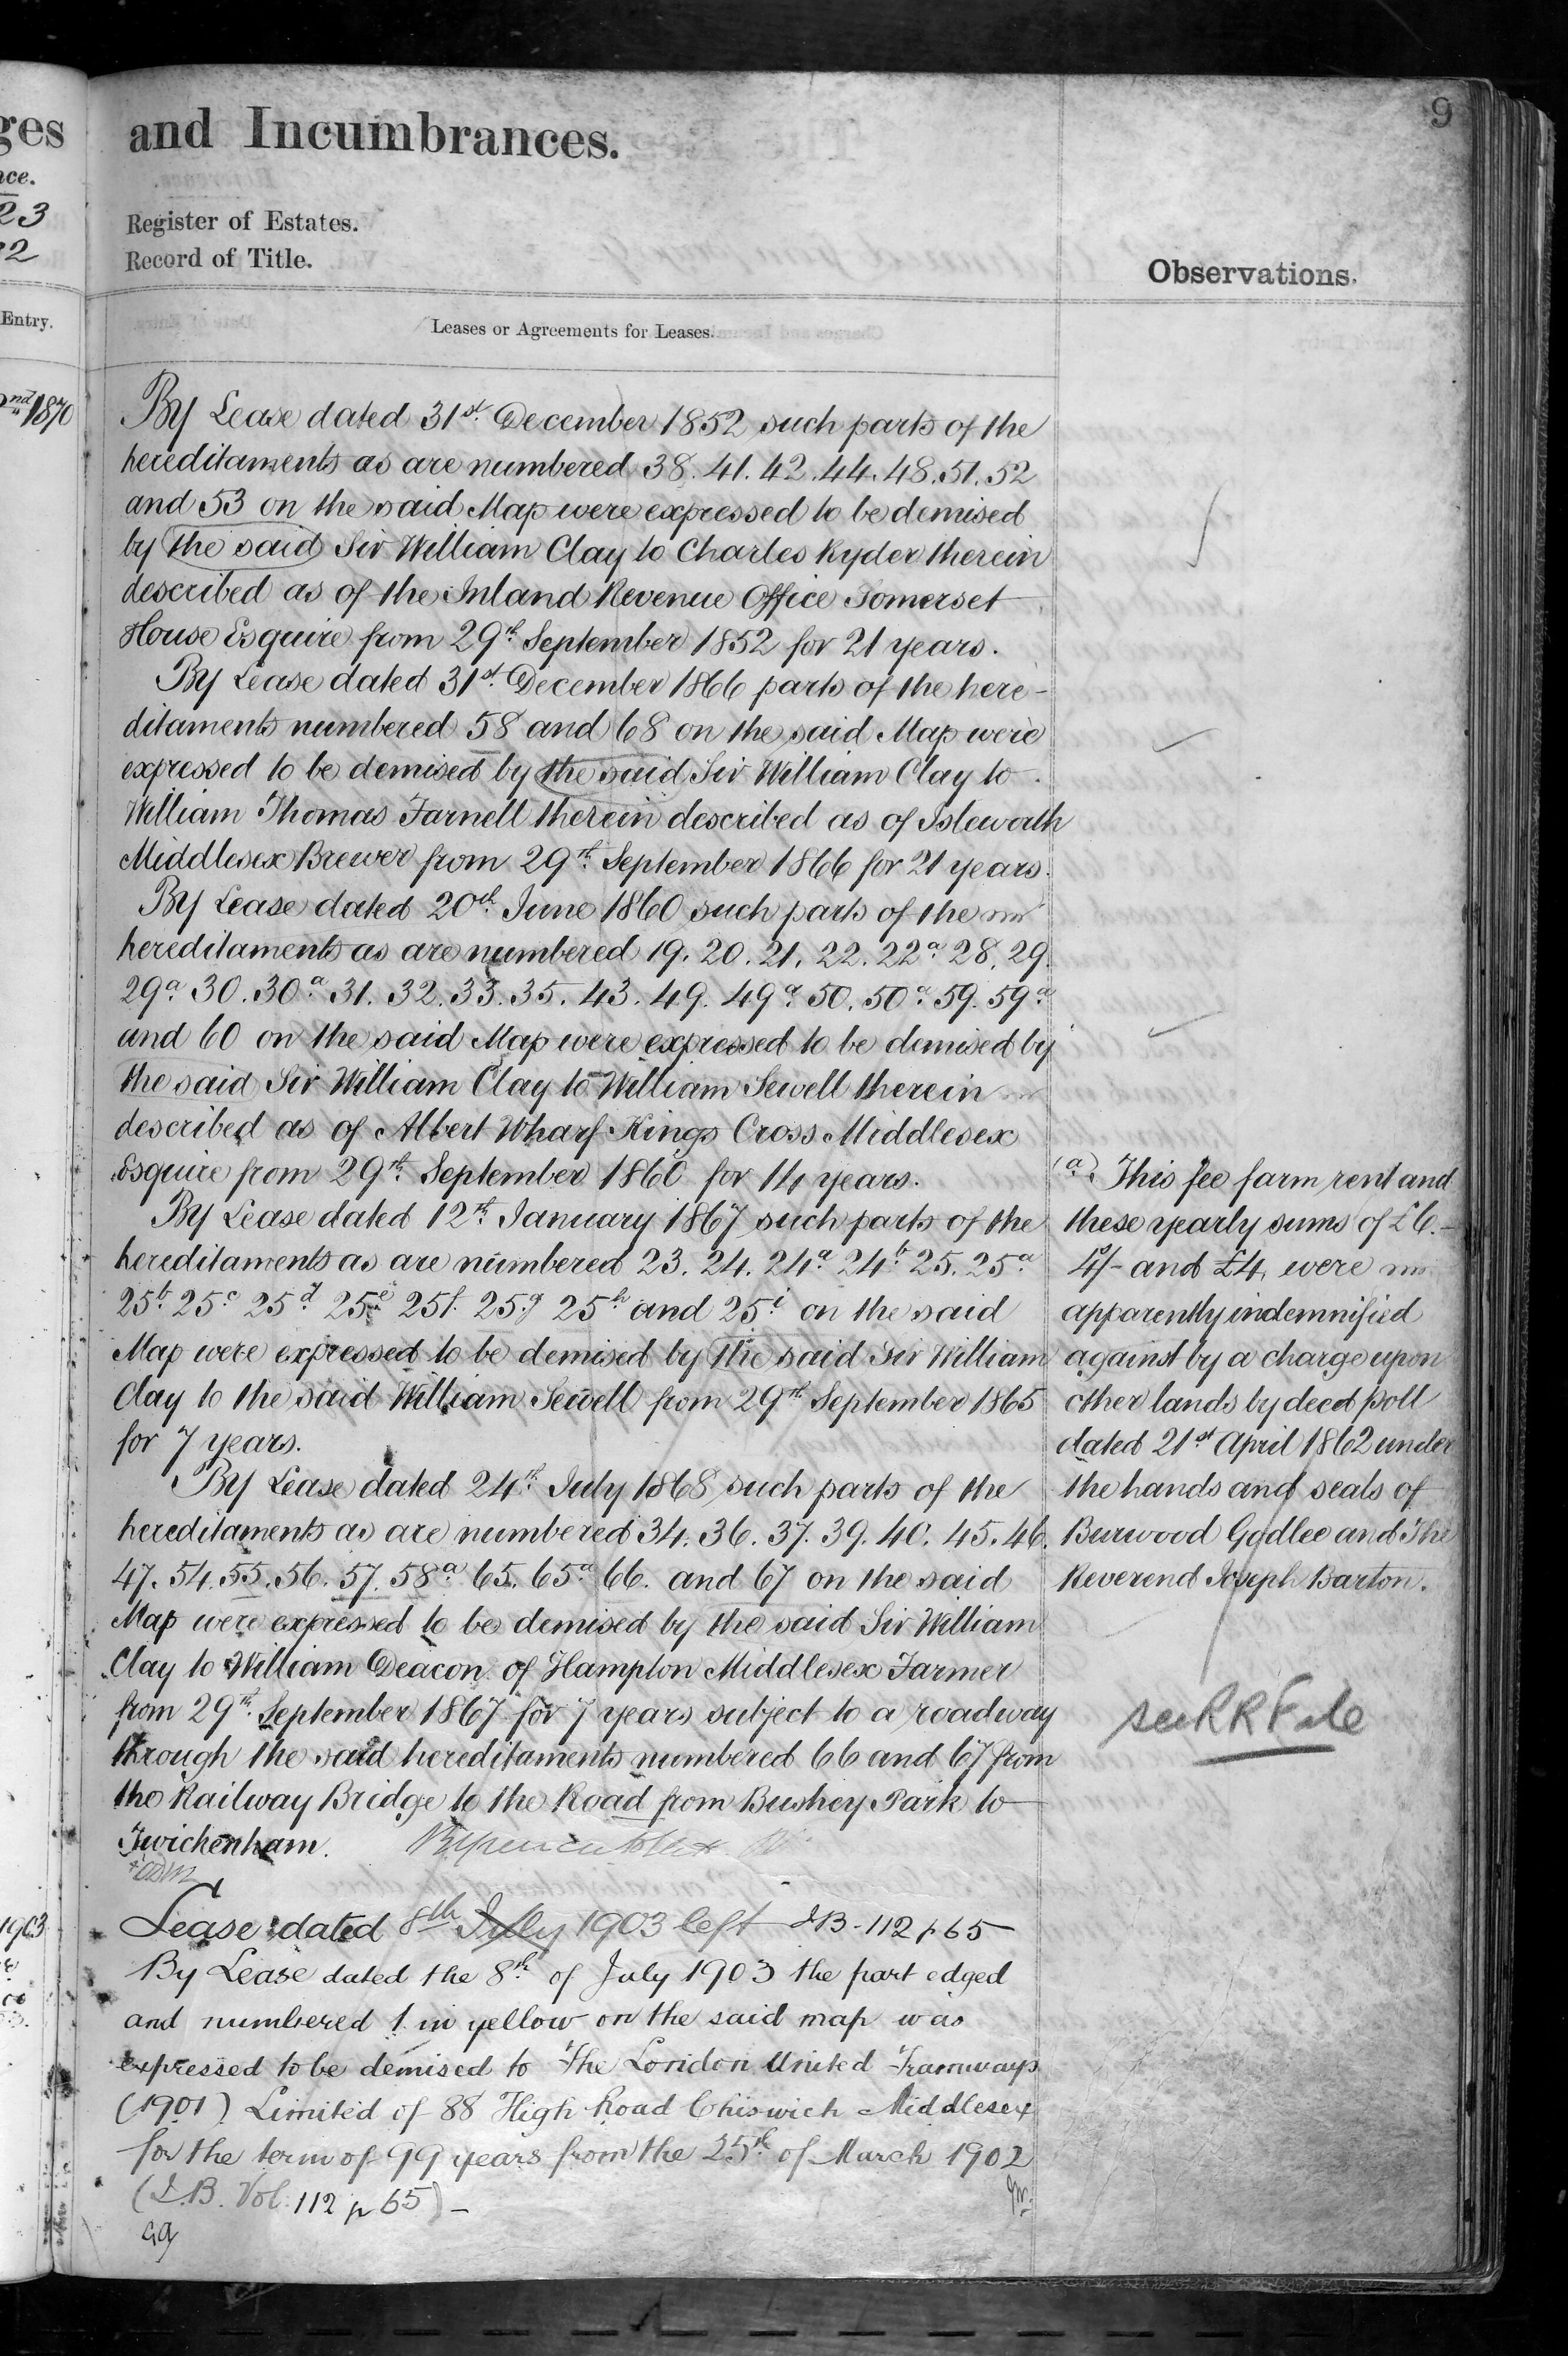 ges
nce.
23
2
Entry.
2nd 1870
1903
9
and Incumbrances.
Register of Estates.
Record of Title.
Leases or Agreements for Leases.
By Lease dated 31st December 1852 such parts of the
hereditaments as are numbered 38. 41. 42. 44. 48. 51. 52
and 53 on the said Map were expressed to be demised
by the said Sir William Clay to Charles Ryder therein
described as of the Inland Revenue Office Somerset
House Esquire from 29th September 1852 for 21 years.
By Lease dated 31st December 1866 parts of the here-
ditaments numbered 58 and 68 on the said Map were
expressed to be demised by the said Sir William Clay to
William Thomas Farnell therein described as of Isleworth
Middlesex Brewer from 29th September 1866 for 21 years.
By Lease dated 20th June 1860 such parts of the
hereditaments as are numbered 19. 20. 21. 22. 22a 28. 29.
29a 30. 30a 31. 32. 33. 35. 43. 49. 49a 50. 50a 59. 59a
and 60 on the said Map were expressed to be demised by
the said Sir William Clay to William Sewell therein
described as of Albert Wharf Kings Cross Middlesex
Esquire from 29th September 1860 for 14 years.
By Lease dated 12th January 1867 such parts of the
hereditaments as are numbered 23. 24. 24a 24b 25. 25a
25b 25c 25d 25e 25f 25g 25h and 25i on the said
Map were expressed to be demised by the said Sir William
Clay to the said William Sewell from 29th September 1865
for 7 years.
By Lease dated 24th July 1868 such parts of the
hereditaments as are numbered 34. 36. 37. 39. 40. 45. 46.
47. 54. 55. 56. 57. 58a 65. 65a 66. and 67 on the said
Map were expressed to be demised by the said Sir William
Clay to William Deacon of Hampton Middlesex Farmer
from 29th September 1867 for 7 years subject to a roadway
through the said hereditaments numbered 66 and 67 from
the Railway Bridge to the Road from Bushey Park to
Twickenham.
Lease dated 8th July 1903 left I.B. 112 p 65
By Lease dated the 8th of July 1903 the part edged
and numbered 1 in yellow on the said map was
expressed to be demised to The London United Tramways
(1901) Limited of 88 High Road Chiswick Middlesex
for the term of 99 years from the 25th of March 1902
(I.B. Vol. 112 p 65) -
Observations.
(a). This fee farm rent and
these yearly sums of £6.-
4/- and £4. were
apparently indemnified
against by a charge upon
other lands by deed poll
dated 21st April 1862 under
the hands and seals of
Burwood Godlee and The
Reverend Joseph Barton.
see RR File